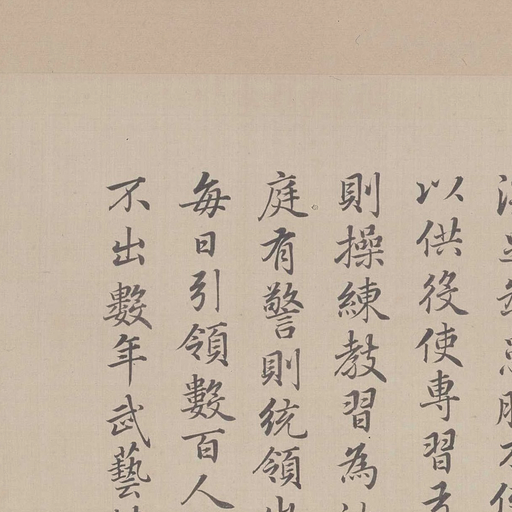 以供役使專習
則操練教習為
庭有警則統領
每日引領數百人
不出數年武藝